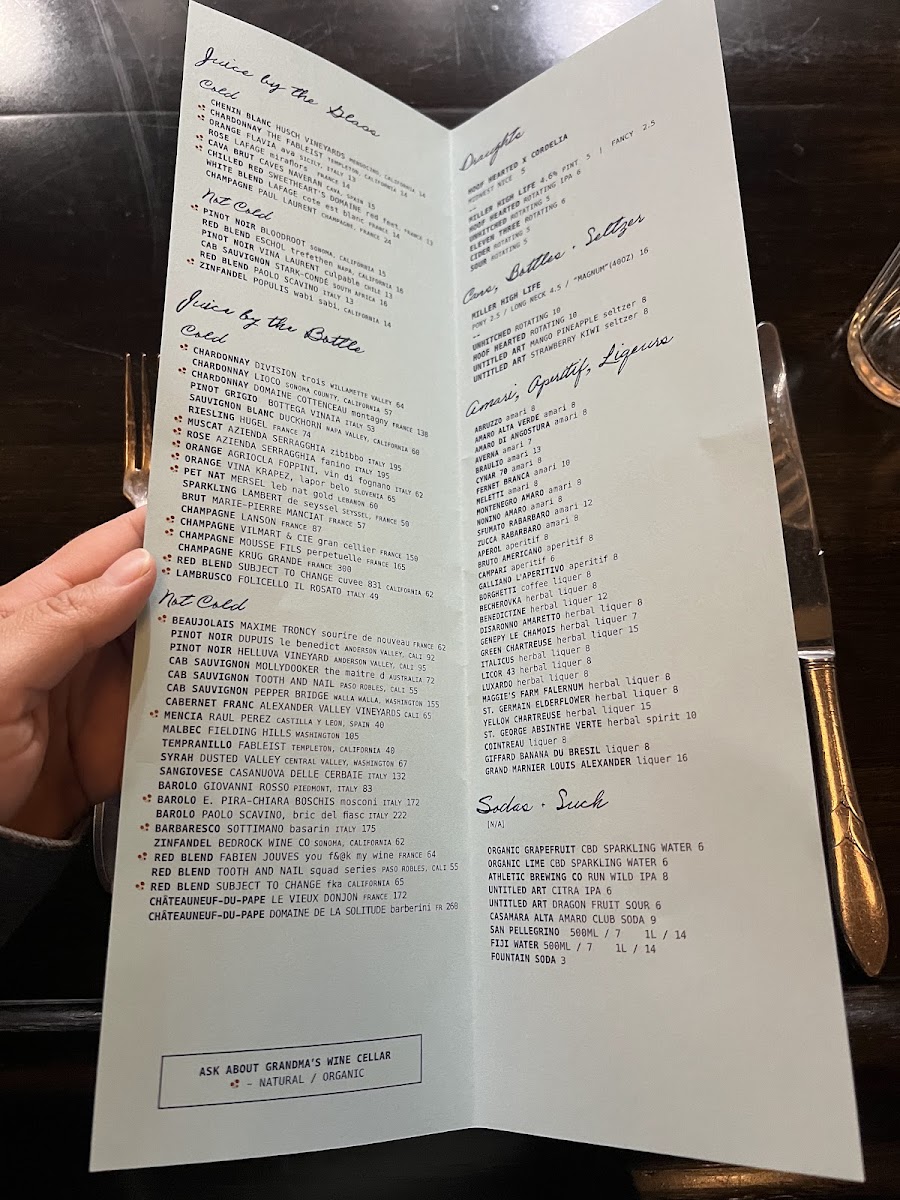 Juice by the Glass
Cold
CHENIN BLANC HUSCH VINEYARDS MENDOCINO, CALIFORNIA 14
CHARDONNAY THE FABLEIST TEMPLETON, CALIFORNIA 14
ORANGE FLAVIA ava SICILY, ITALY 13
ROSE LAFAGE miraflors FRANCE 14
CAVA BRUT CAVES NAVERAN CAVA, SPAIN 15
CHILLED RED SWEETHEART'S DOMAINE red feet, FRANCE 13
WHITE BLEND LAFAGE cote est blanc FRANCE 14
CHAMPAGNE PAUL LAURENT CHAMPAGNE, FRANCE 24
Not Cold
PINOT NOIR BLOODROOT SONOMA, CALIFORNIA 15
RED BLEND ESCHOL trefethen NAPA, CALIFORNIA 16
PINOT NOIR VINA LAURENT culpable CHILE 13
CAB SAUVIGNON STARK-CONDÉ SOUTH AFRICA 16
RED BLEND PAOLO SCAVINO ITALY 13
ZINFANDEL POPULIS wabi sabi, CALIFORNIA 14
Juice by the Bottle
Cold
CHARDONNAY DIVISION trois WILLAMETTE VALLEY 64
CHARDONNAY LIOCO SONOMA COUNTY, CALIFORNIA 57
CHARDONNAY DOMAINE COTTENCEAU montagny FRANCE 138
PINOT GRIGIO BOTTEGA VINAIA ITALY 53
SAUVIGNON BLANC DUCKHORN NAPA VALLEY, CALIFORNIA 60
RIESLING HUGEL FRANCE 74
MUSCAT AZIENDA SERRAGGHIA zibibbo ITALY 195
ROSE AZIENDA SERRAGGHIA fanino ITALY 195
ORANGE AGRIOCLA FOPPINI, vin di fognano ITALY 62
ORANGE VINA KRAPEZ, lapor belo SLOVENIA 65
PET NAT MERSEL leb nat gold LEBANON 60
SPARKLING LAMBERT de seyssel SEYSSEL, FRANCE 50
BRUT MARIE-PIERRE MANCIAT FRANCE 57
CHAMPAGNE LANSON FRANCE 87
CHAMPAGNE VILMART & CIE gran cellier FRANCE 150
CHAMPAGNE MOUSSE FILS perpetuelle FRANCE 165
CHAMPAGNE KRUG GRANDE FRANCE 300
RED BLEND SUBJECT TO CHANGE cuvee 831 CALIFORNIA 62
LAMBRUSCO FOLICELLO IL ROSATO ITALY 49
Not Cold
BEAUJOLAIS MAXIME TRONCY sourire de nouveau FRANCE 62
PINOT NOIR DUPUIS le benedict ANDERSON VALLEY, CALI 92
PINOT NOIR HELLUVA VINEYARD ANDERSON VALLEY, CALI 95
CAB SAUVIGNON MOLLYDOOKER the maitre d AUSTRALIA 72
CAB SAUVIGNON TOOTH AND NAIL PASO ROBLES, CALI 55
CAB SAUVIGNON PEPPER BRIDGE WALLA WALLA, WASHINGTON 155
CABERNET FRANC ALEXANDER VALLEY VINEYARDS CALI 65
MENCIA RAUL PEREZ CASTILLA Y LEON, SPAIN 40
MALBEC FIELDING HILLS WASHINGTON 105
TEMPRANILLO FABLEIST TEMPLETON, CALIFORNIA 40
SYRAH DUSTED VALLEY CENTRAL VALLEY, WASHINGTON 67
SANGIOVESE CASANUOVA DELLE CERBAIE ITALY 132
BAROLO GIOVANNI ROSSO PIEDMONT, ITALY 83
BAROLO E. PIRA-CHIARA BOSCHIS mosconi ITALY 172
BAROLO PAOLO SCAVINO, bric del fiasc ITALY 222
BARBARESCO SOTTIMANO basarin ITALY 175
ZINFANDEL BEDROCK WINE CO SONOMA, CALIFORNIA 62
RED BLEND FABIEN JOUVES you f&@k my wine FRANCE 64
RED BLEND TOOTH AND NAIL squad series PASO ROBLES, CALI 55
RED BLEND SUBJECT TO CHANGE fka CALIFORNIA 65
CHÂTEAUNEUF-DU-PAPE LE VIEUX DONJON FRANCE 172
CHÂTEAUNEUF-DU-PAPE DOMAINE DE LA SOLITUDE barberini FR 260
ASK ABOUT GRANDMA'S WINE CELLAR
- NATURAL / ORGANIC
Draughts
HOOF HEARTED X CORDELIA
MIDWEST NICE 5
MILLER HIGH LIFE 4.6% PINT 5 | FANCY 2.5
HOOF HEARTED ROTATING IPA 6
UNHITCHED ROTATING 5
ELEVEN THREE ROTATING 6
CIDER ROTATING 5
SOUR ROTATING 5
Cans, Bottles + Seltzer
MILLER HIGH LIFE
PONY 2.5 / LONG NECK 4.5 / "MAGNUM"(40OZ) 16
UNHITCHED ROTATING 10
HOOF HEARTED ROTATING 10
UNTITLED ART MANGO PINEAPPLE seltzer 8
UNTITLED ART STRAWBERRY KIWI seltzer 8
Amari, Aperitif, Liqeurs
ABRUZZO amari 8
AMARO ALTA VERDE amari 8
AMARO DI ANGOSTURA amari 8
AVERNA amari 7
BRAULIO amari 13
CYNAR 70 amari 8
FERNET BRANCA amari 10
MELETTI amari 8
MONTENEGRO AMARO amari 8
NONINO AMARO amari 8
SFUMATO RABARBARO amari 12
ZUCCA RABARBARO amari 8
APEROL aperitif 8
BRUTO AMERICANO aperitif 8
CAMPARI aperitif 6
GALLIANO L'APERITIVO aperitif 8
BORGHETTI coffee liquer 8
BECHEROVKA herbal liquer 8
BENEDICTINE herbal liquer 12
DISARONNO AMARETTO herbal liquer 8
GENEPY LE CHAMOIS herbal liquer 7
GREEN CHARTREUSE herbal liquer 15
ITALICUS herbal liquer 8
LICOR 43 herbal liquer 8
LUXARDO herbal liquer 8
MAGGIE'S FARM FALERNUM herbal liquer 8
ST. GERMAIN ELDERFLOWER herbal liquer 8
YELLOW CHARTREUSE herbal liquer 15
ST. GEORGE ABSINTHE VERTE herbal spirit 10
COINTREAU liquer 8
GIFFARD BANANA DU BRESIL liquer 8
GRAND MARNIER LOUIS ALEXANDER liquer 16
Sodas + Such
[N/A]
ORGANIC GRAPEFRUIT CBD SPARKLING WATER 6
ORGANIC LIME CBD SPARKLING WATER 6
ATHLETIC BREWING CO RUN WILD IPA 8
UNTITLED ART CITRA IPA 6
UNTITLED ART DRAGON FRUIT SOUR 6
CASAMARA ALTA AMARO CLUB SODA 9
SAN PELLEGRINO 500ML / 7 1L / 14
FIJI WATER 500ML / 7 1L / 14
FOUNTAIN SODA 3